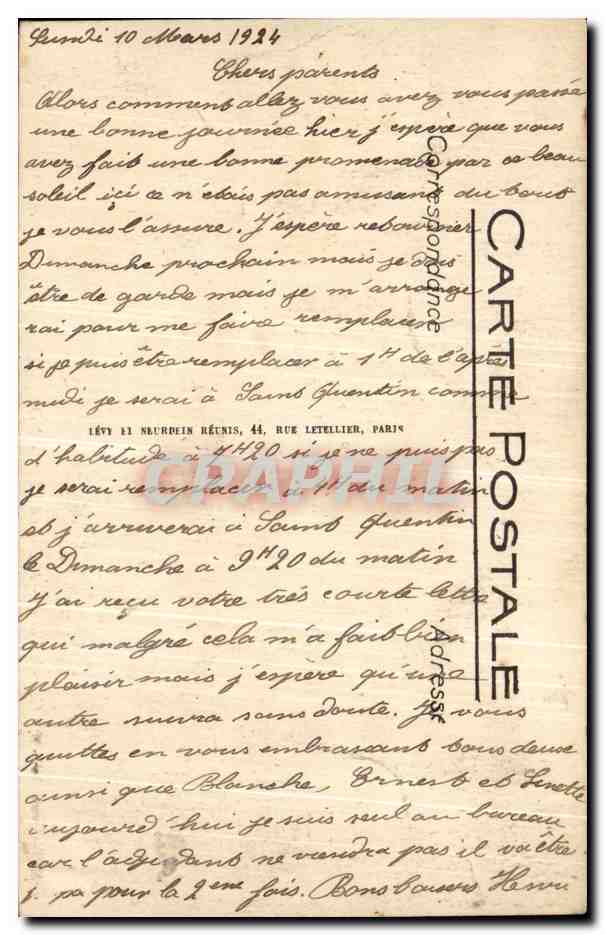 Lundi 10 Mars 1924
Chers parents
Alors comment allez vous avez vous passé
une bonne journée hier j'espère que vous
avez fait une bonne promenade par ce beau
soleil ici ce n'était pas amusant du tout
je vous l'assure. J'espère retourner
Dimanche prochain mais je dois
être de garde mais je m'arrange
rai pour me faire remplacer
si je puis être remplacer à 1H de l'après
midi je serai à Saint Quentin comme
LÉVY ET NEURDEIN RÉUNIS, 44, RUE LETELLIER, PARIS
d'habitude à 4H20 si je ne puis pas
je serai remplacer à 1H du matin
et j'arriverai à Saint Quentin
le Dimanche à 9H20 du matin
J'ai reçu votre très courte lettre
qui malgré cela m'a fait bien
plaisir mais j'espère qu'une
autre suivra sans doute. Je vous
quittes en vous embrassant tous deux
ainsi que Blanche, Ernest et Ginette
aujourd'hui je suis seul au bureau
car l'adjudant ne viendra pas il va être
pa pour la 2eme fois. Bons baisers Henri
CARTE POSTALE
Correspondance
Adresse
CPAPHIL